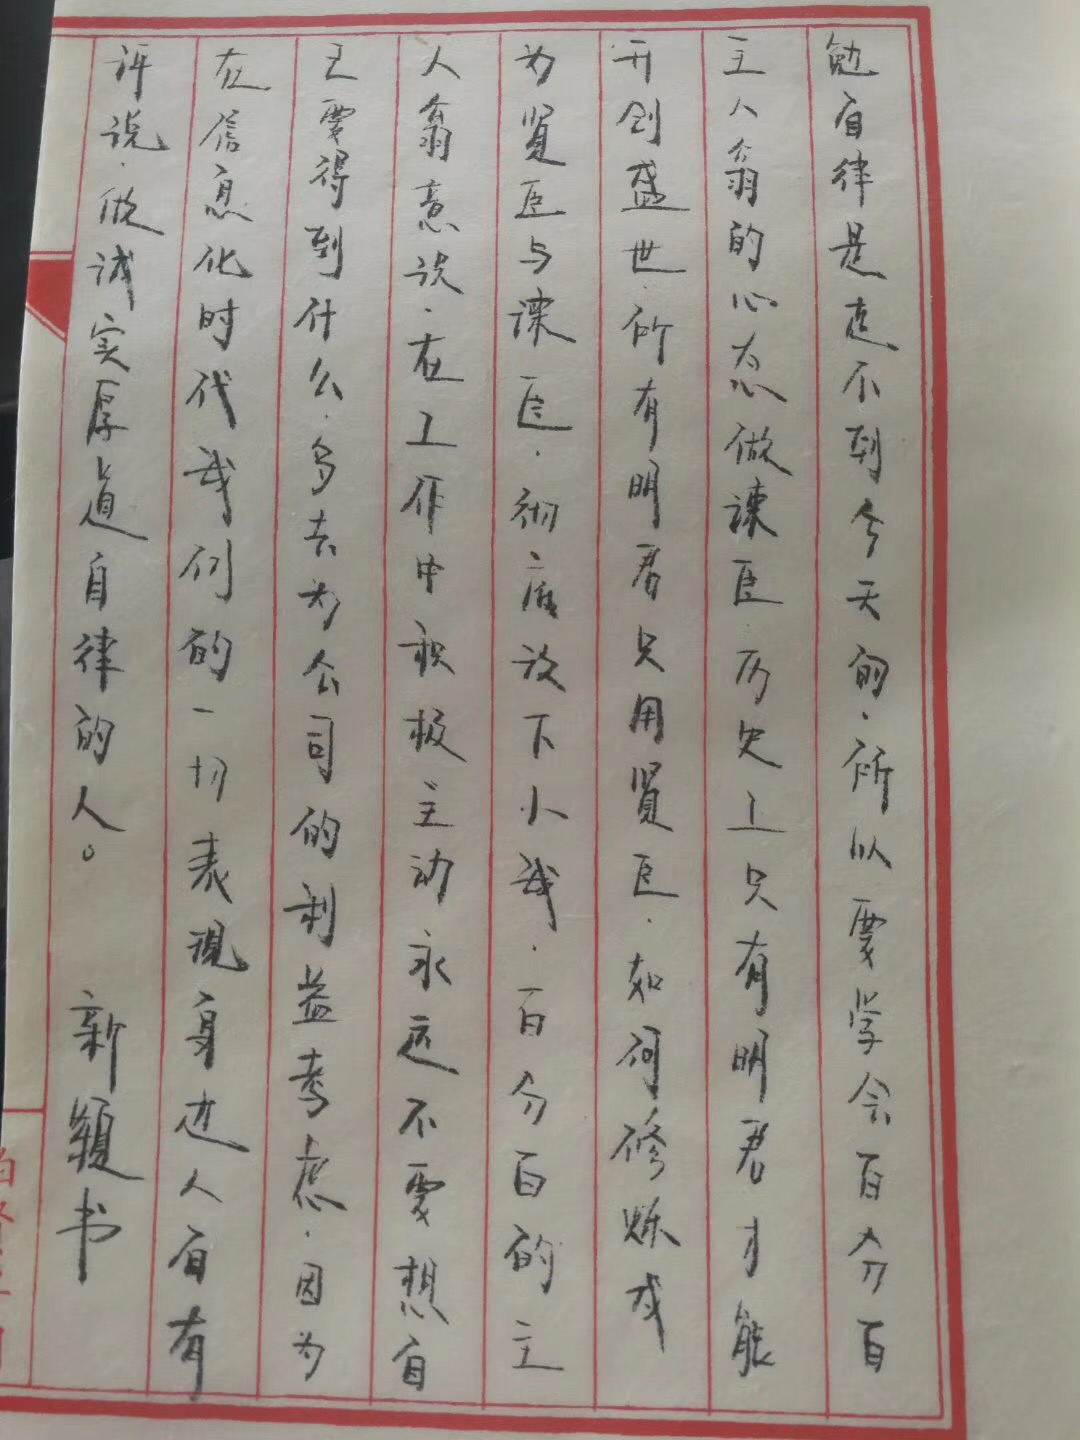 勉自律是走不到今天的.所以要学会百分百
主人翁的心态做谏臣.历史上只有明君才能
开创盛世.所有明君只用贤臣.如何修炼成
为贤臣与谏臣.彻底放下小我.百分百的主
人翁意识.在工作中积极主动永远不要想自
己要得到什么.多去为公司的利益考虑.因为
在信息化时代我们的一切表现身边人自有
评说.做诚实厚道自律的人。 新颖书